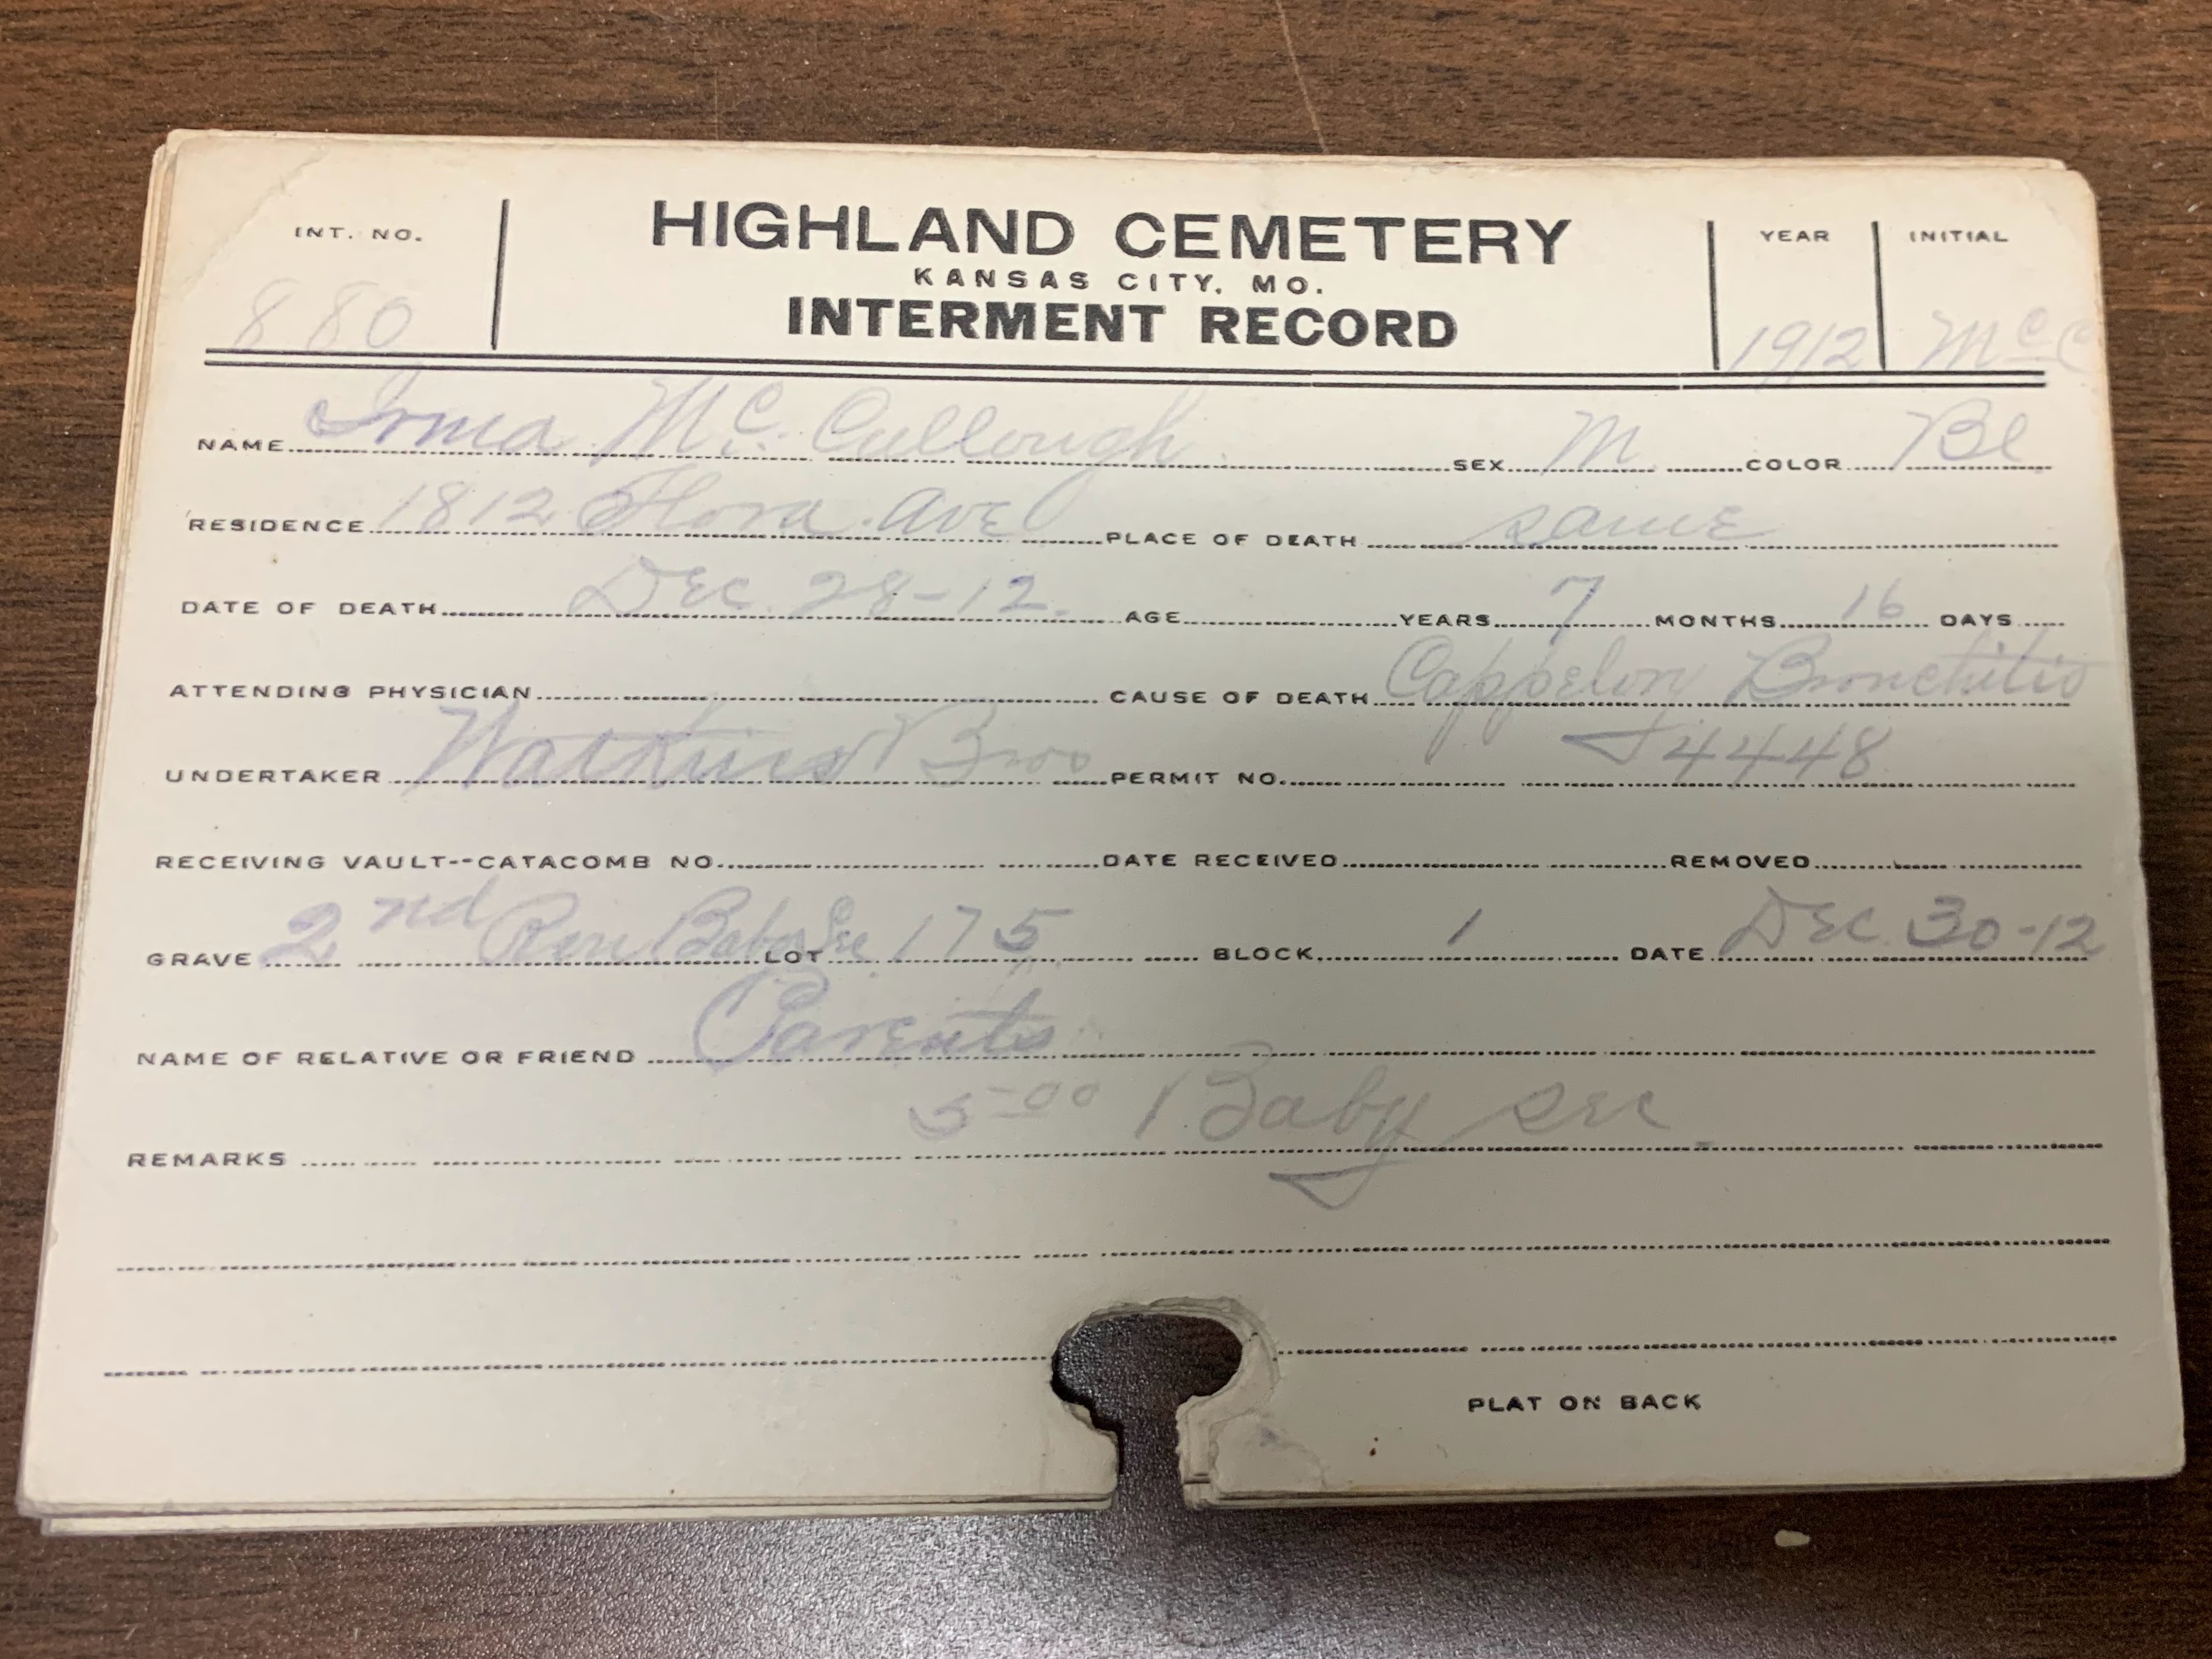 INT. NO. HIGHLAND CEMETERY YEAR INITIAL
KANSAS CITY, MO.
880 INTERMENT RECORD 1912 McC
NAME Irma McCullough SEX M COLOR Bl
RESIDENCE 1812 Flora Ave PLACE OF DEATH same
DATE OF DEATH Dec 28-12 AGE YEARS 7 MONTHS 16 DAYS
ATTENDING PHYSICIAN CAUSE OF DEATH Bronchitis
UNDERTAKER Watkins Bros PERMIT NO. 4448
RECEIVING VAULT--CATACOMB NO. DATE RECEIVED REMOVED
GRAVE 2nd Row Baby Sec LOT 175 BLOCK 1 DATE Dec 30-12
NAME OF RELATIVE OR FRIEND Parents
REMARKS 5-00 Baby sec.
PLAT ON BACK